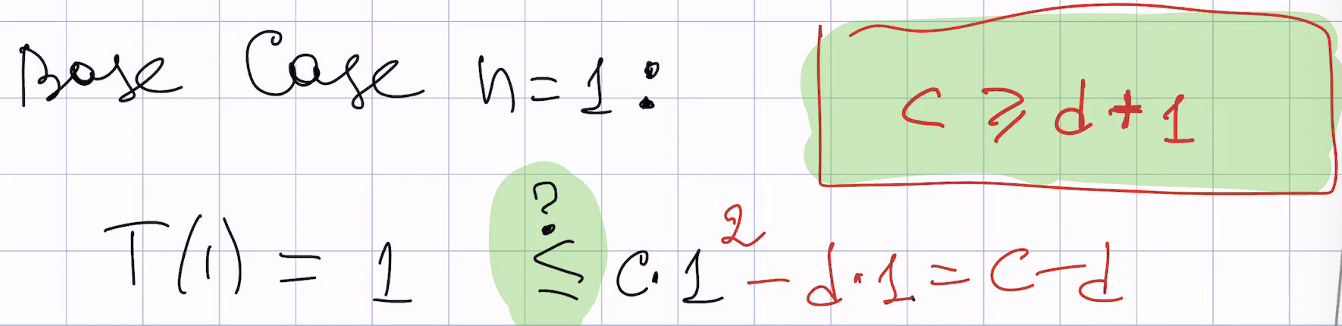 Base Case n=1:
c ≥ d+1
T(1) = 1 ≤? c·1² - d·1 = c-d